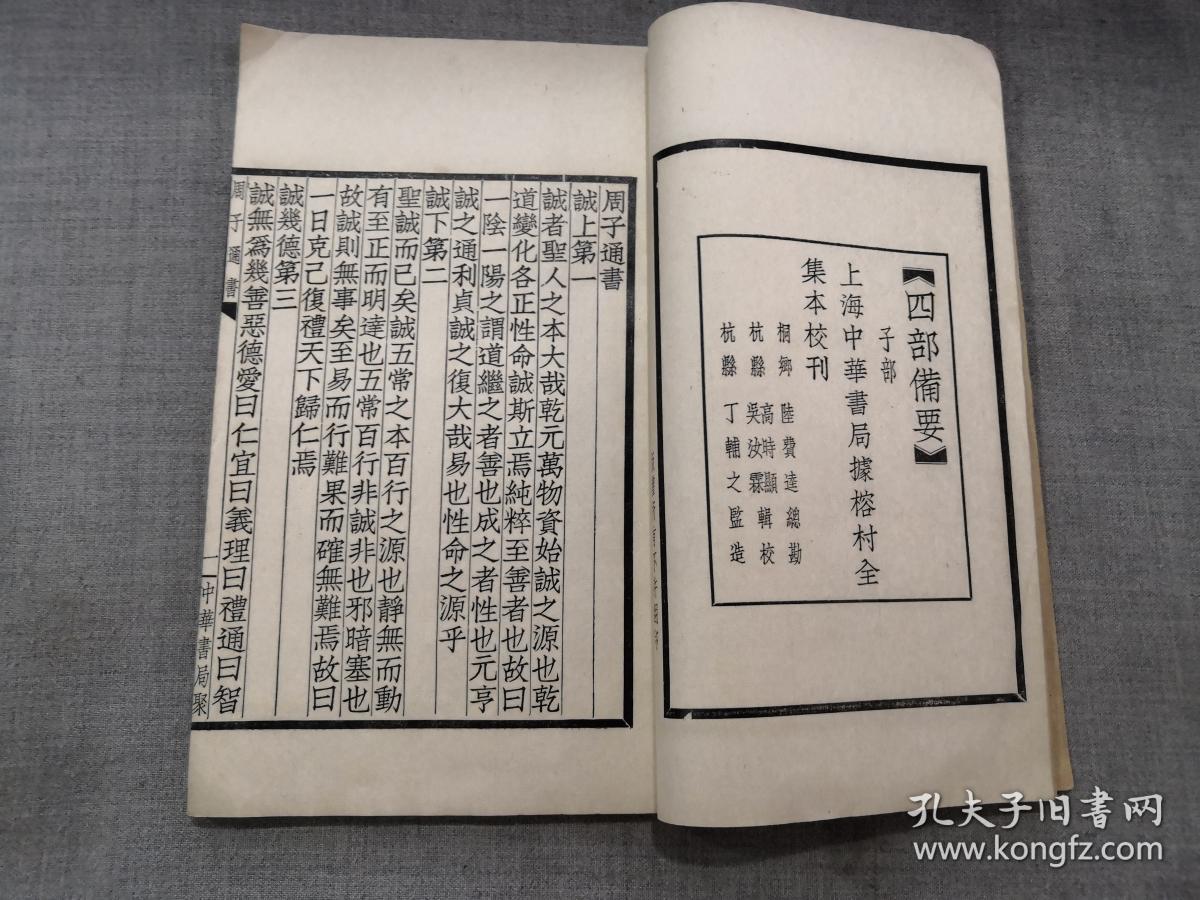 《四部備要》
子部
上海中華書局據榕村全
集本校刊
桐鄉 陸費逵總勘
杭縣 高時顯輯校
杭縣 吳汝霖輯校
杭縣 丁輔之監造
周子通書
誠上第一
誠者聖人之本大哉乾元萬物資始誠之源也乾
道變化各正性命誠斯立焉純粹至善者也故曰
一陰一陽之謂道繼之者善也成之者性也元亨
誠之通利貞誠之復大哉易也性命之源乎
誠下第二
聖誠而已矣誠五常之本百行之源也靜無而動
有至正而明達也五常百行非誠非也邪暗塞也
故誠則無事矣至易而行難果而確無難焉故曰
一日克己復禮天下歸仁焉
誠幾德第三
誠無爲幾善惡德愛曰仁宜曰義理曰禮通曰智
周子通書
一 中華書局聚
孔夫子旧书网
www.kongfz.com